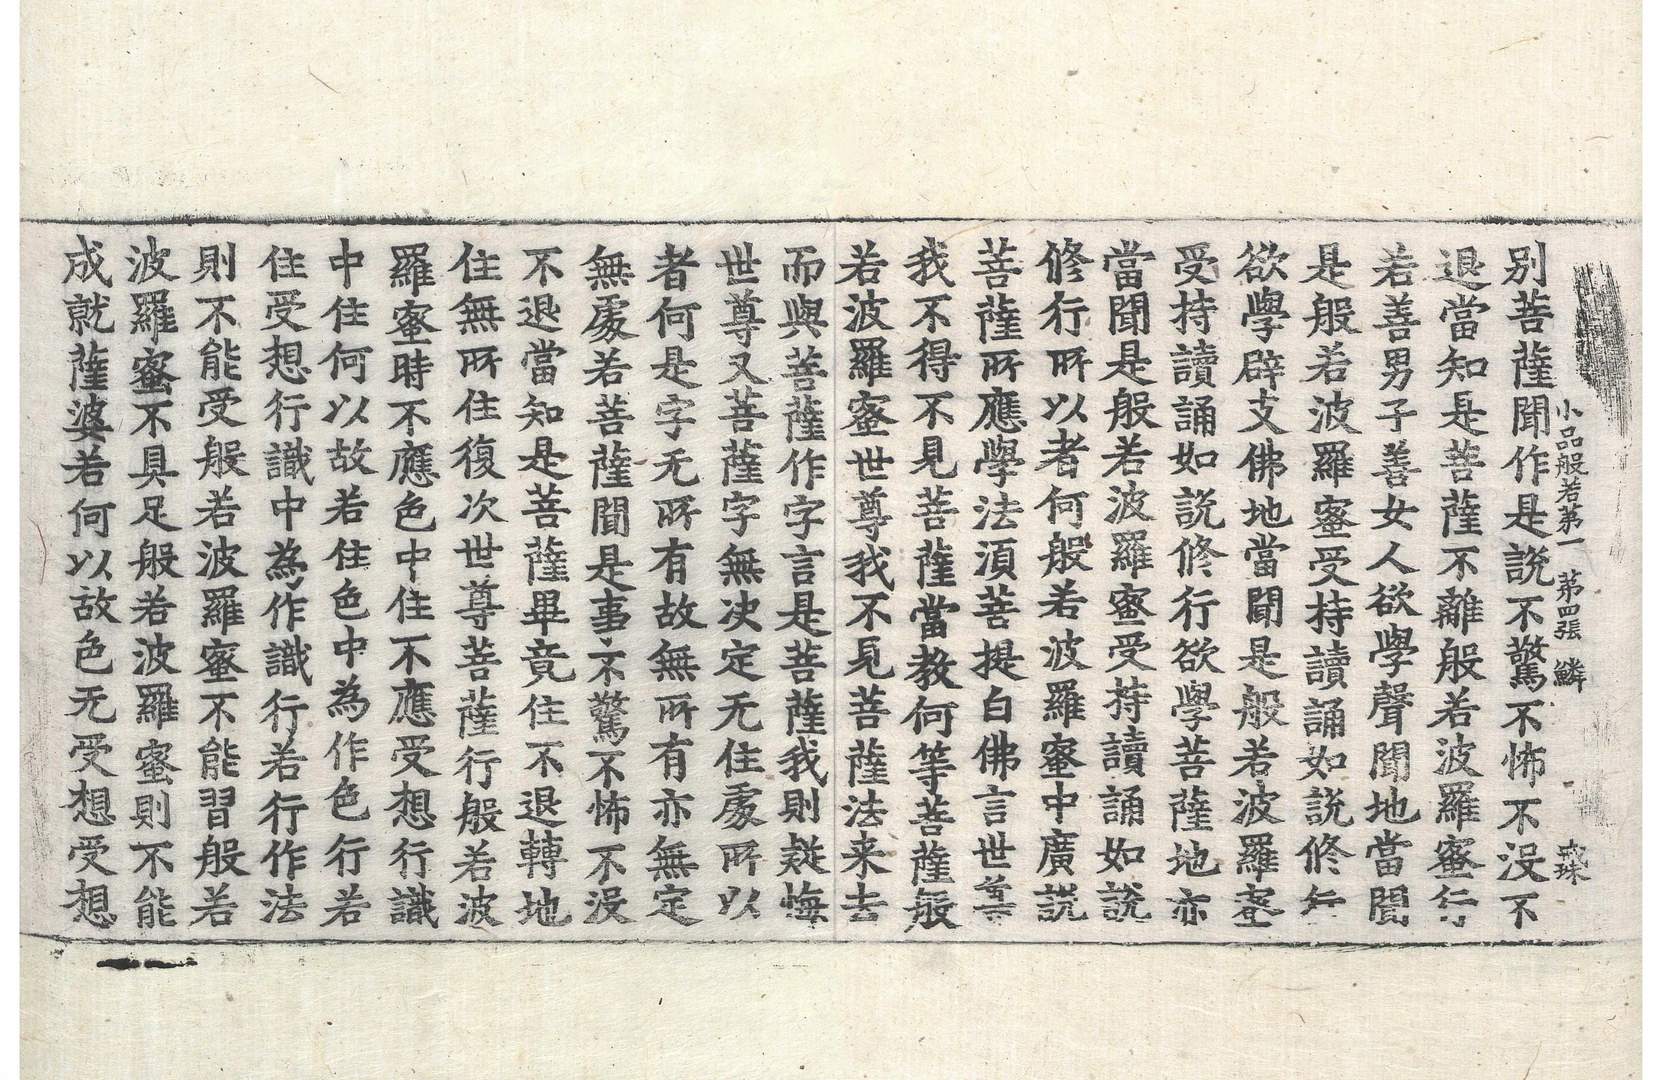 小品般若第一 第四張 鱗 戒珠
別菩薩聞作是說不驚不怖不没不
退當知是菩薩不離般若波羅蜜行
若善男子善女人欲學聲聞地當聞
是般若波羅蜜受持讀誦如說修行
欲學辟支佛地當聞是般若波羅蜜
受持讀誦如說修行欲學菩薩地亦
當聞是般若波羅蜜受持讀誦如說
修行所以者何般若波羅蜜中廣說
菩薩所應學法湏菩提白佛言世尊
我不得不見菩薩當教何等菩薩般
若波羅蜜世尊我不見菩薩法来去
而與菩薩作字言是菩薩我則疑悔
世尊又菩薩字無决定无住處所以
者何是字无所有故無所有亦無定
無處若菩薩聞是事不驚不怖不没
不退當知是菩薩畢竟住不退轉地
住無所住復次世尊菩薩行般若波
羅蜜時不應色中住不應受想行識
中住何以故若住色中為作色行若
住受想行識中為作識行若行作法
則不能受般若波羅蜜不能習般若
波羅蜜不具足般若波羅蜜則不能
成就薩婆若何以故色无受想受想